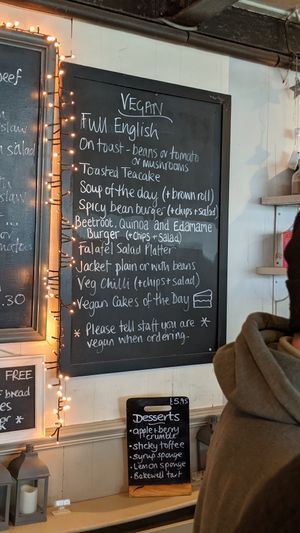 VEGAN
Full English
On toast - beans or tomato
or mushrooms
Toasted Teacake
Soup of the day (+ brown roll)
Spicy bean burger (+chips+salad)
Beetroot, Quinoa and Edamame
Burger (+chips+salad)
Falafel Salad Platter
Jacket plain or with beans
Veg Chilli (+chips+salad)
Vegan Cakes of the Day
* Please tell staff you are *
vegan when ordering.
FREE
bread
Desserts
£5.95
• apple + berry
crumble
• sticky toffee
• syrup sponge
• Lemon sponge
• Bakewell tart